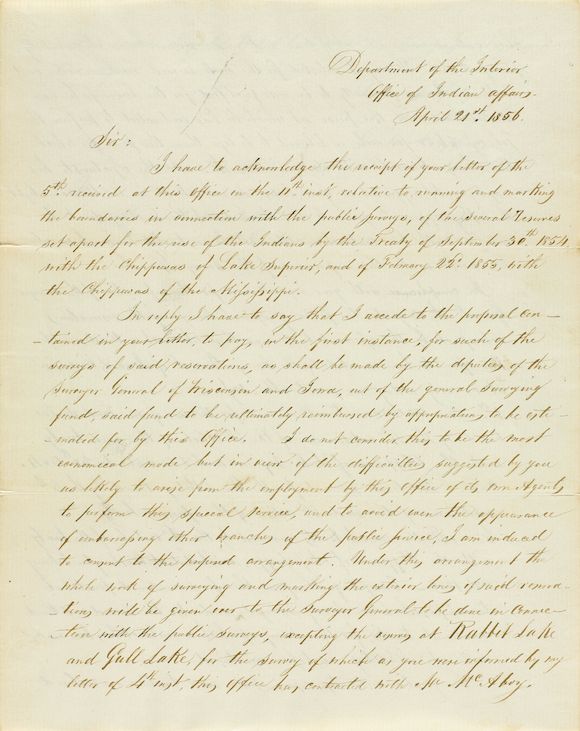 Department of the Interior
Office of Indian affairs.
April 21st. 1856.
Sir:
I have to acknowledge the receipt of your letter of the
5th. received at this office on the 11th inst, relative to running and marking
the boundaries in connection with the public surveys, of the several reserves
set apart for the use of the Indians by the Treaty of September 30th 1854
with the Chippewas of Lake Superior, and of February 22d. 1855, with
the Chippewas of the Mississippi.
In reply I have to say that I accede to the proposal con-
-tained in your letter, to pay, in the first instance, for such of the
surveys of said reservations, as shall be made by the deputies of the
Surveyor General of Wisconsin and Iowa, out of the general surveying
fund, said fund to be ultimately reimbursed by appropriations to be esti-
mated for by this Office. I do not consider this to be the most
economical mode but in view of the difficulties suggested by you
as likely to arise from the employment by this office of its own Agents
to perform this special service, and to avoid even the appearance
of embarrassing other branches of the public service, I am induced
to consent to the proposed arrangement. Under this arrangement the
whole work of surveying and marking the exterior lines of said reserva-
-tions will be given over to the Surveyor General to be done in connec-
-tion with the public surveys, excepting the reserves at Rabbit Lake
and Gull Lake, for the survey of which as you were informed by my
letter of 4th inst, this office has contracted with Mr